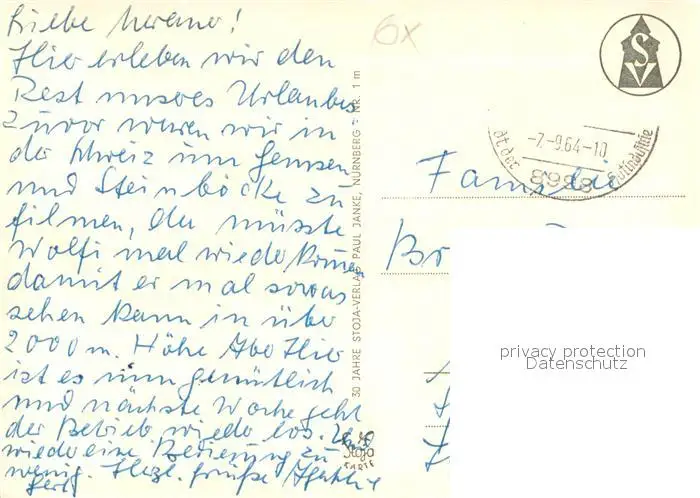 Liebe
Hier erleben wir den
Rest unseres Urlaubes
Zuvor waren wir in
der Schweiz um Gemsen
und Steinböcke zu
filmen, da müsste
Wolfi mal wieder kommen
damit er mal sowas
sehen kann in über
2000 m. Höhe Aber Hier
ist es nun gemütlich
und nächste Woche geht
der Betrieb wieder los.
wieder eine Bedienung zu
wenig. Herzl. Grüße
Gert
30 JAHRE STOJA-VERLAG PAUL JANKE, NÜRNBERG - NR. 1 m
Stoja
KARTE
6x
SV
-7.-9.64-10
8998
Familie
Br
privacy protection
Datenschutz